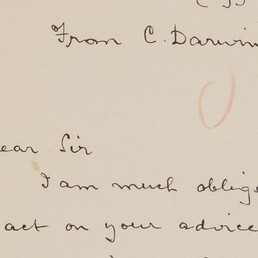 From C. Darwin
ear Sir
I am much oblige
act on your advice